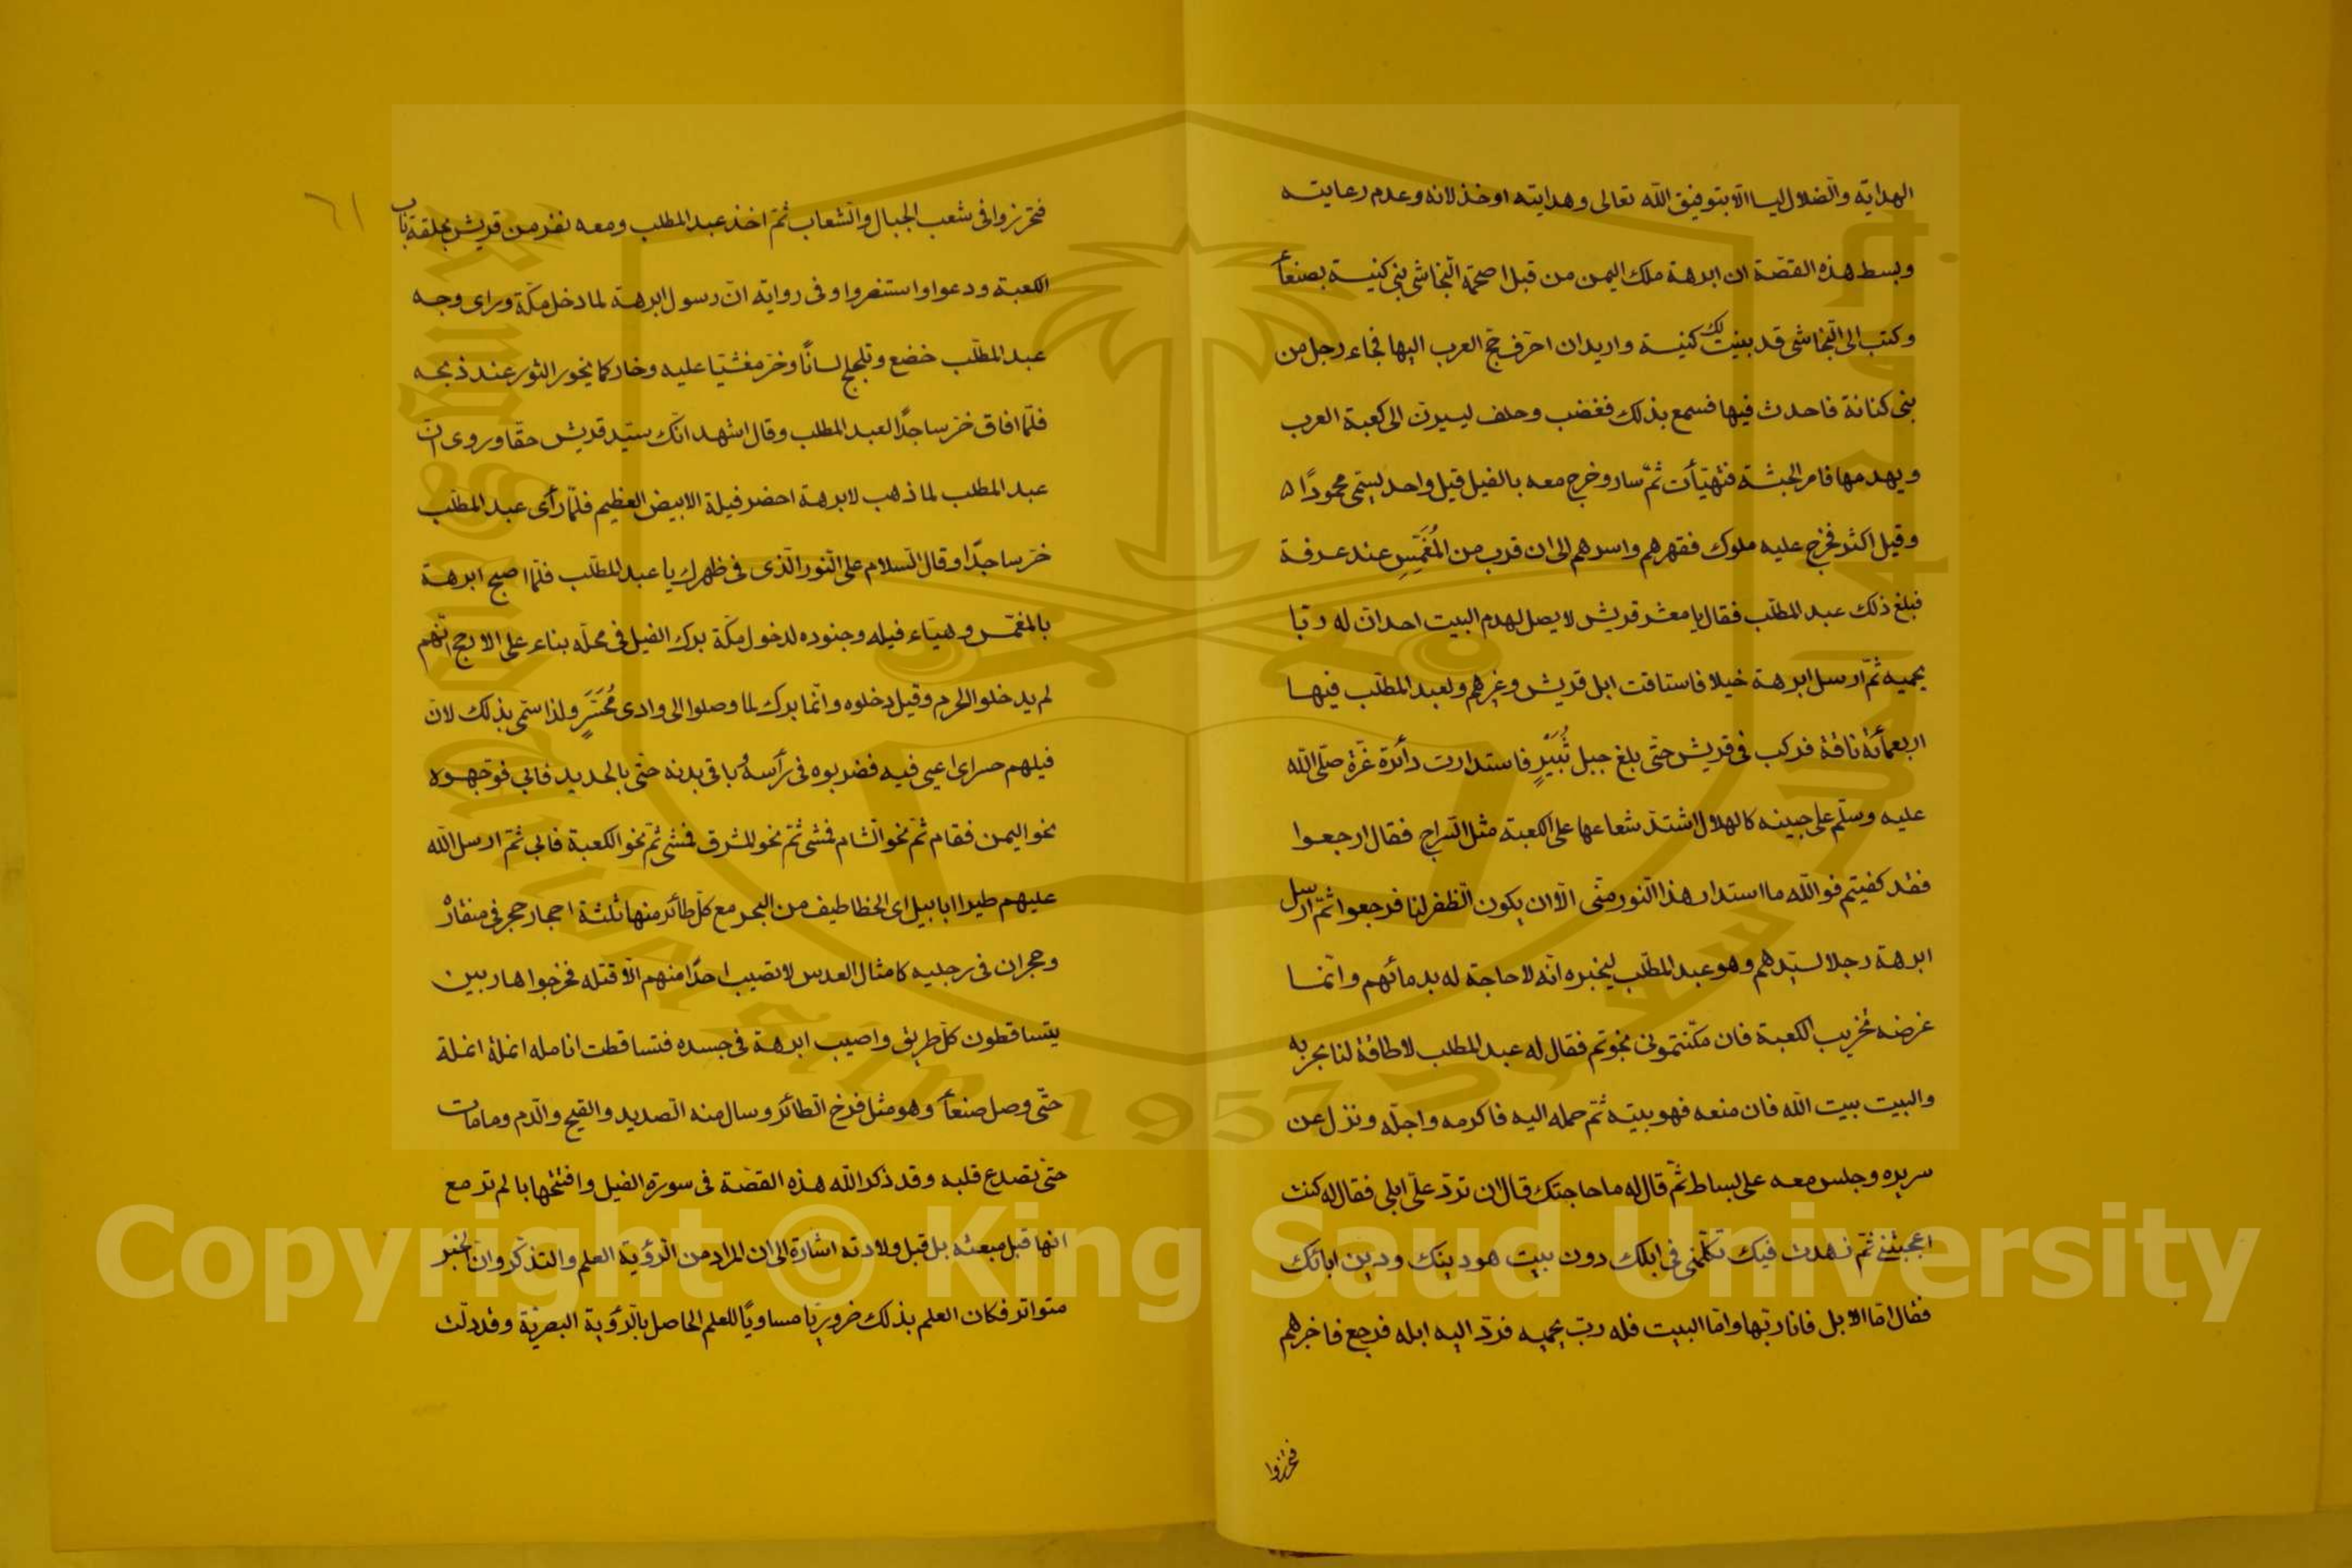 الهداية والضلال ليسا الا بتوفيق الله تعالى وهدايته او خذلانه وعدم رعايته
وبسط هذه القصّة ان ابرهة ملك اليمن من قبل اصحمة النّجاشى بنى كنيسة بصنعأ
وكتب الى النّجاشى قد بنيت لك كنيسة واريد ان احرف حجّ العرب اليها فجاء رجل من
بنى كنانة فاحدث فيها فسمع بذلك فغضب وحلف ليسيرنّ الى كعبة العرب
ويهدمها فامر الحبشة فتهيّأت ثمّ سار وخرج معه بالفيل قيل واحد يسمّى محمودًا
وقيل اكثر فخرج عليه ملوك فقهرهم واسرهم الى ان قرب من المُغَمَّسِ عند عرفة
فبلغ ذلك عبد المطّلب فقال يا معشر قريش لا يصل لهدم البيت احد ان له ربّا
يحميه ثمّ ارسل ابرهة خيلا فاستاقت ابل قريش وغيرهم ولعبد المطّلب فيها
اربعمأئة ناقة فركب فى قريش حتّى بلغ جبل ثُبَيْرٍ فاستدارت دأئرة غرّة صلّى الله
عليه وسلّم على جبينه كالهلال اشتدّ شعاعها على الكعبة مثل السّراج فقال ارجعوا
فقد كفيتم فوالله ما استدار هذا النّور منّى الّا ان يكون الظّفر لنا فرجعوا ثمّ ارسل
ابرهة رجلا لسيّدهم وهو عبد المطّلب ليخبره انّه لا حاجة له بدمائهم وانّما
غرضه تخريب الكعبة فان مكّنتمونى نجوتم فقال له عبد المطلب لا طاقة لنا بحربه
والبيت بيت الله فان منعه فهو بيته ثمّ حمله اليه فاكرمه واجلّه ونزل عن
سريره وجلس معه على بساط ثمّ قال له ما حاجتك قال ان تردّ علىّ ابلى فقال له كنت
اعجبتنى ثمّ زهدت فيك تكلّمنى فى ابلك دون بيت هو دينك ودين ابائك
فقال امّا الابل فانا ربّها وامّا البيت فله ربّ يحميه فردّ اليه ابله فرجع فاخبرهم
فتحرّزوا
٦١
فتحرّزوا فى شعب الجبال والشعاب ثمّ اخذ عبد المطلب ومعه نفر من قريش بحلقة باب
الكعبة ودعوا واستنصروا وفى رواية انّ رسول ابرهة لما دخل مكّة ورأى وجه
عبد المطّلب خضع وتلجلج لسانًا وخرّ مغشيّا عليه وخار كما يخور الثور عند ذبحه
فلمّا افاق خرّ ساجدًا لعبد المطلب وقال اشهد انّك سيّد قريش حقّا وروى انّ
عبد المطلب لما ذهب لابرهة احضر فيلة الابيض العظيم فلمّا رأى عبد المطّلب
خرّ ساجدًا وقال السّلام على النّور الّذى فى ظهرك يا عبد المطّلب فلمّا اصبح ابرهة
بالمغمّس وهيّاء فيله وجنوده لدخول مكّة برك الفيل فى محلّه بناء على الارجح انّهم
لم يدخلوا الحرم وقيل دخلوه وانّما برك لمّا وصلوا الى وادى مُحَسَّرٍ ولذا سمّى بذلك لانّ
فيلهم حسر اى اعيى فيه فضربوه فى رأسه وباقى بدنه حتّى بالحديد فابى فوجّهوه
نحو اليمن فقام ثمّ نحو الشام فمشى ثمّ نحو المشرق فمشى ثمّ نحو الكعبة فابى ثمّ ارسل الله
عليهم طيرا ابابيل اى الخطاطيف من البحر مع كلّ طائر منها ثلثة احجار حجر فى منقاره
وحجران فى رجليه كامثال العدس لا تصيب احدًا منهم الّا قتله فخرجوا هاربين
يتساقطون كلّ طريق واصيب ابرهة فى جسده فتساقطت انامله انملة انملة
حتّى وصل صنعأ وهو مثل فرخ الطائر وسال منه الصديد والقيح والدّم وما مات
حتى تصدع قلبه وقد ذكر الله هذه القصّة فى سورة الفيل وافتتحها بالم تر مع
انها قبل مبعثه بل قبل ولادته اشارة الى ان المراد من الرّؤية العلم والتذكّر وان الخبر
متواتر فكان العلم بذلك ضروريّا مساويًا للعلم الحاصل بالرّؤية البصريّة وقد دلّت
King Saud University
1957
Copyright © King Saud University